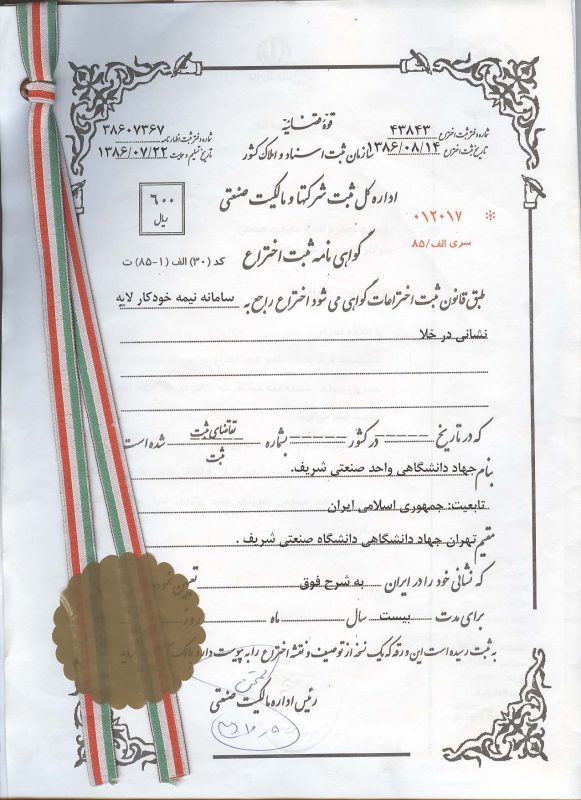 قوهٔ قضائیه
شماره دفتر ثبت اختراع ۴۳۸۴۳
شماره دفتر ثبت اظهارنامه ۳۸۶۰۷۳۶۷
تاریخ ثبت اختراع ۱۳۸۶/۰۸/۱۴
سازمان ثبت اسناد و املاک کشور
تاریخ تسلیم ۱۳۸۶/۰۷/۲۲
اداره کل ثبت شرکتها و مالکیت صنعتی
۶۰۰
ریال
۰۱۲۰۱۷
سری الف/۸۵
گواهی نامه ثبت اختراع
کد (۳۰) الف (۱-۸۵) ت
طبق قانون ثبت اختراعات گواهی می شود اختراع راجع به سامانه نیمه خودکار لایه
نشانی در خلا
که در تاریخ ------ در کشور ------ بشماره ------ تقاضای ثبت شده است
ثبت
بنام جهاد دانشگاهی واحد صنعتی شریف.
تابعیت: جمهوری اسلامی ایران
مقیم تهران جهاد دانشگاهی دانشگاه صنعتی شریف .
که نشانی خود را در ایران به شرح فوق تعیین نموده
برای مدت بیست سال ماه روز
به ثبت رسیده است این ورقه که یک نسخه از توصیف و نقشه اختراع را به پیوست دارد
رئیس اداره مالکیت صنعتی